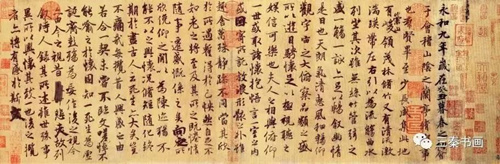 永和九年歲在癸丑暮春之初會
于會稽山陰之蘭亭脩禊事
也群賢畢至少長咸集此地
有崇山峻領茂林脩竹又有清流激
湍暎帶左右引以為流觴曲水
列坐其次雖無絲竹管弦之
盛一觴一詠亦足以暢敘幽情
是日也天朗氣清惠風和暢仰
觀宇宙之大俯察品類之盛
所以遊目騁懷足以極視聽之
娛信可樂也夫人之相與俯仰
一世或取諸懷抱悟言一室之內
或因寄所託放浪形骸之外雖
趣舍萬殊靜躁不同當其欣
於所遇蹔得於己快然自足不
知老之將至及其所之既惓情
隨事遷感慨係之矣向之所
欣俛仰之閒以為陳迹猶不
能不以之興懷況脩短隨化終
期於盡古人云死生亦大矣豈
不痛哉每攬昔人興感之由
若合一契未嘗不臨文嗟悼不
能喻之於懷固知一死生為虛
誕齊彭殤為妄作後之視今
亦由今之視昔悲夫故列
敘時人錄其所述雖世殊事
異所以興懷其致一也後之攬
者亦將有感於斯文
三秦书画